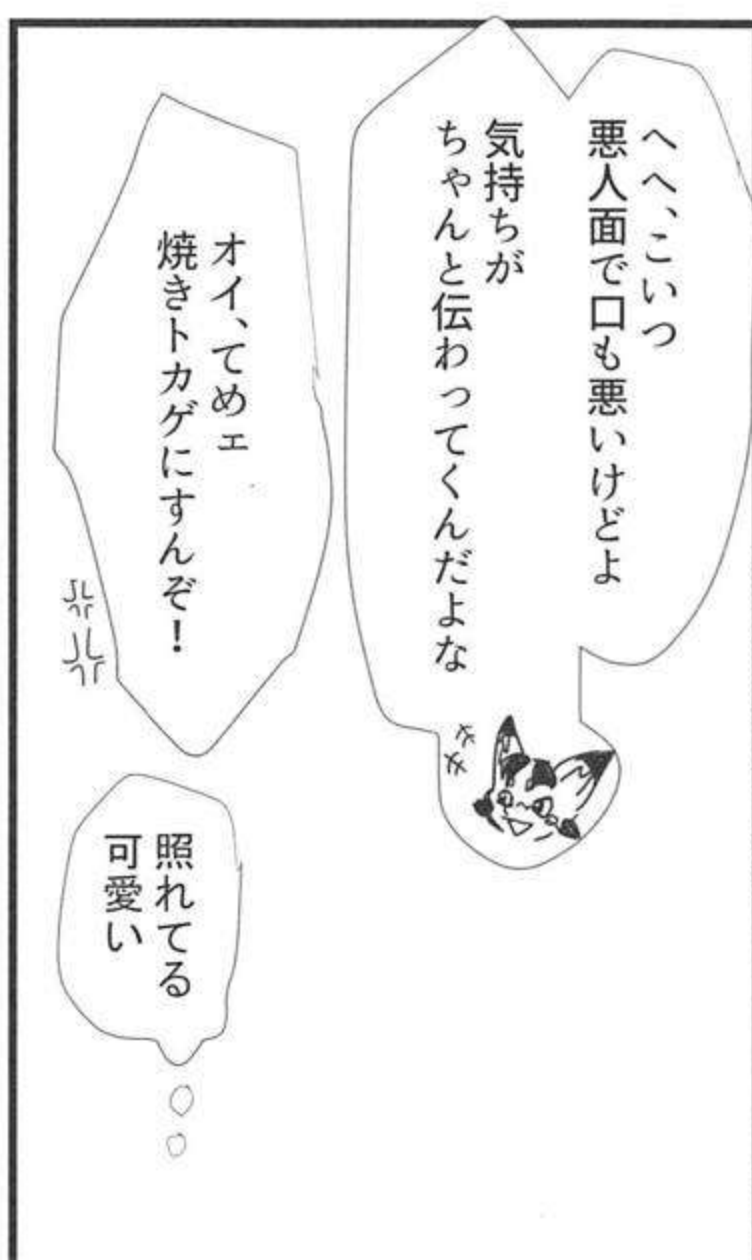 へへ、こいつ
悪人面で口も悪いけどよ
気持ちが
ちゃんと伝わってくんだよな
オイ、てめェ
焼きトカゲにすんぞ！
照れてる
可愛い